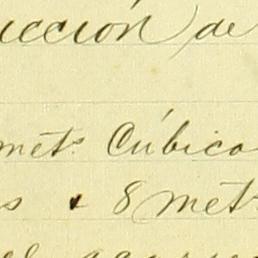 ucción de
mets. Cúbico
s & 8 mets